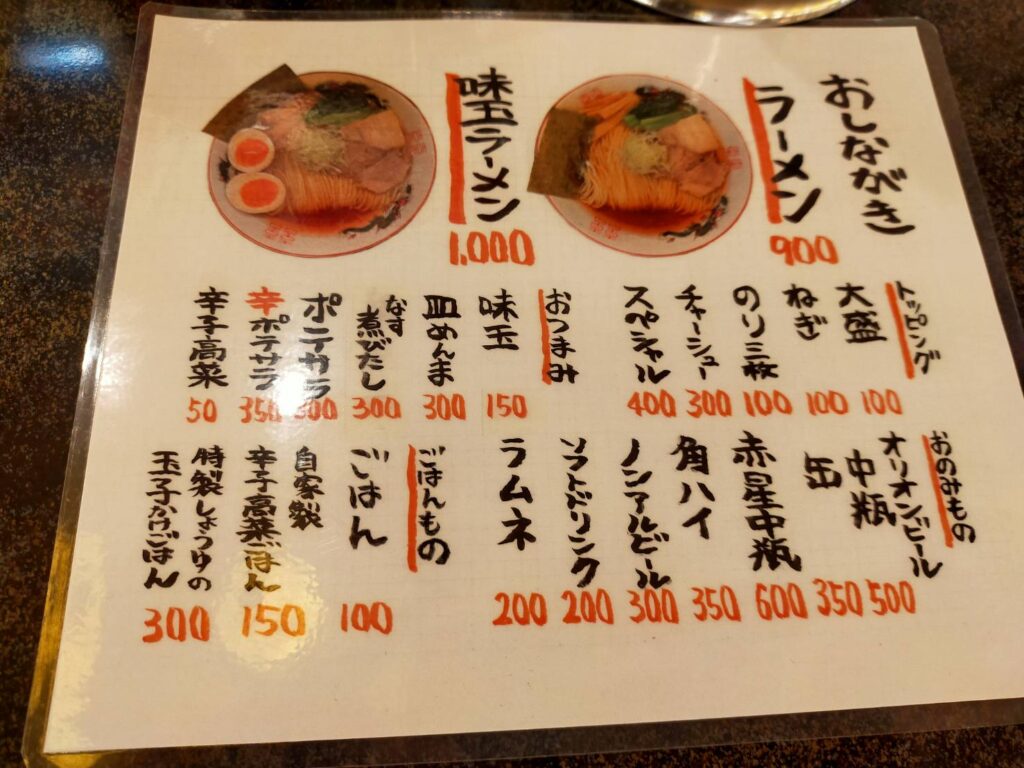 おしながき
ラーメン
900
味玉ラーメン
1,000
トッピング
大盛
100
ねぎ
100
のり三枚
100
チャーシュー
300
スペシャル
400
おつまみ
味玉
150
皿めんま
300
なす
煮びたし
300
ポテサラ
300
辛ポテサラ
350
辛子高菜
50
おのみもの
オリオンビール
中瓶
500
缶
350
赤星中瓶
600
角ハイ
350
ノンアルビール
300
ソフトドリンク
200
ラムネ
200
ごはんもの
ごはん
100
自家製
辛子高菜ごはん
150
特製しょうゆの
玉子かけごはん
300